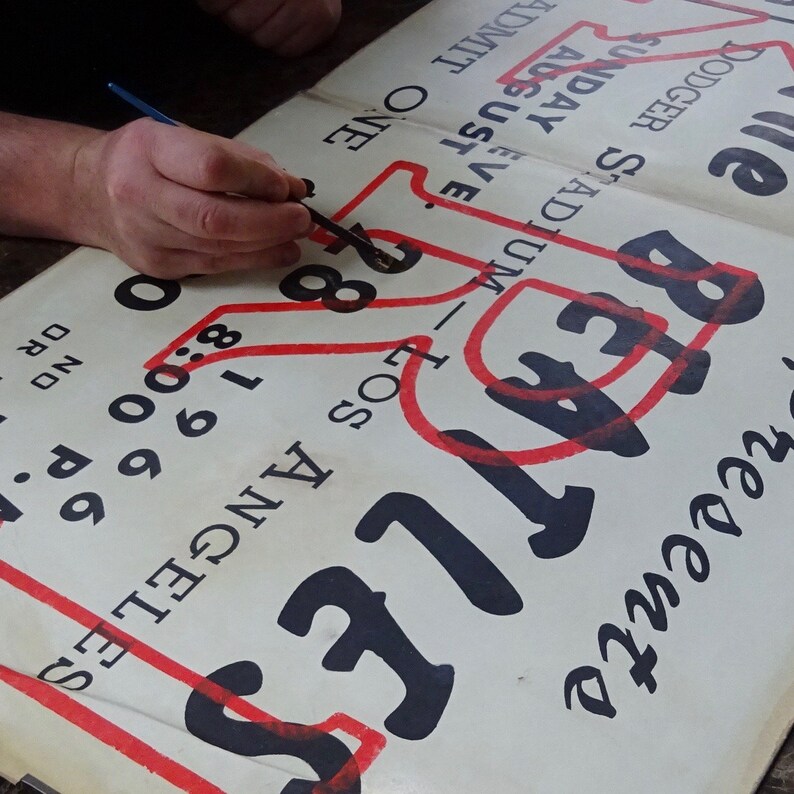 the BEATLES
DODGER STADIUM — LOS ANGELES
SUNDAY EVE.
AUGUST 28 1966
8:00 P.M
ADMIT ONE
NO
OR
R